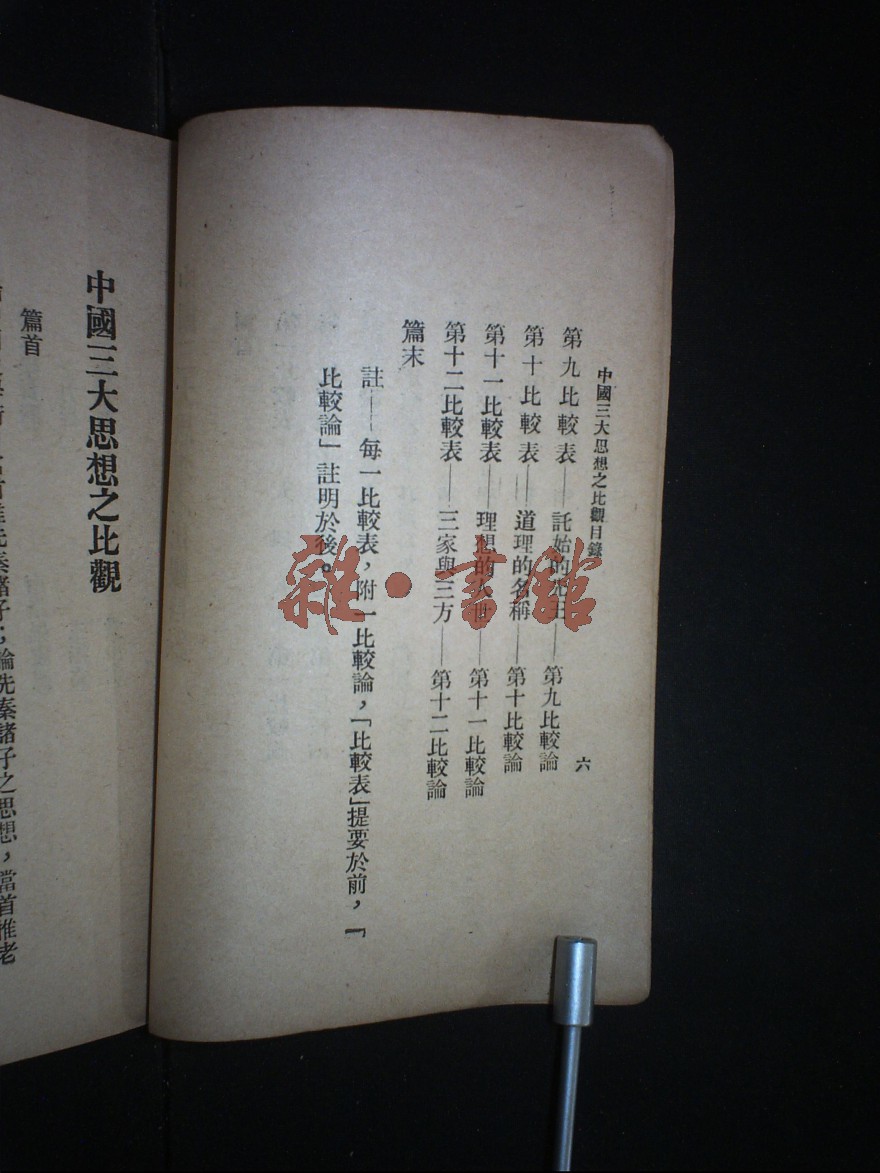 中國三大思想之比觀目錄
六
第九比較表——託始的先王——第九比較論
第十比較表——道理的名稱——第十比較論
第十一比較表——理想的人世——第十一比較論
第十二比較表——三家與三方——第十二比較論
篇末
註——每一比較表，附一比較論，「比較表」提要於前，「
比較論」註明於後。
中國三大思想之比觀
篇首
先秦諸子；論先秦諸子之思想，當首推老
雜·書館